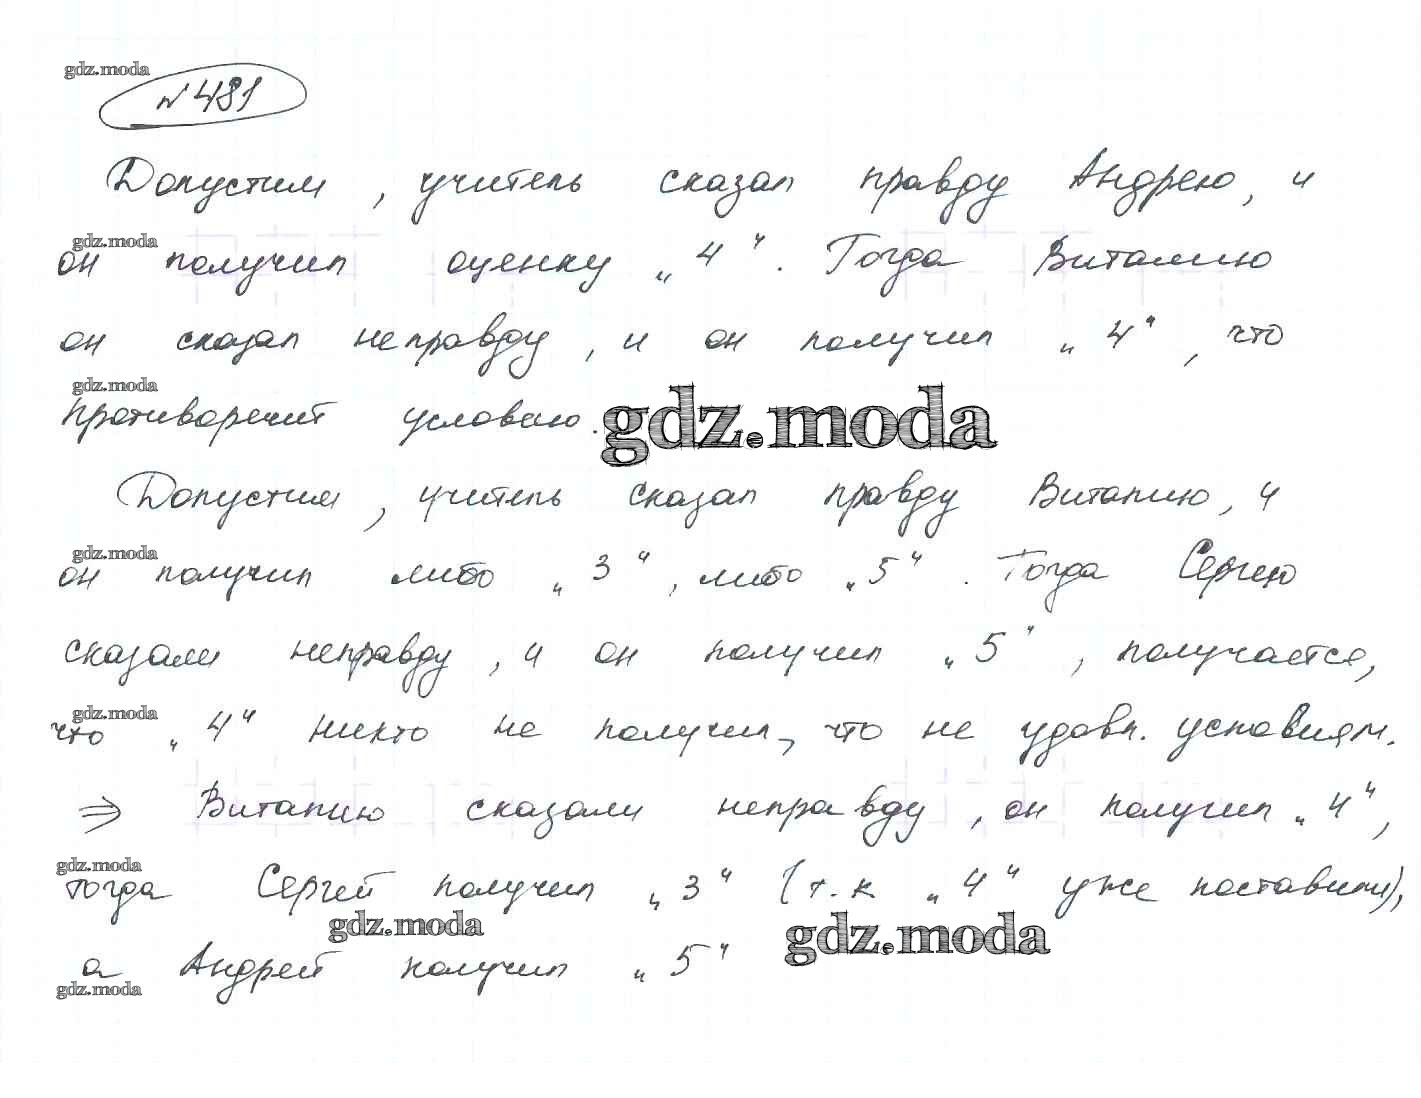 gdz.moda
№481
Допустим, учитель сказал правду Андрею, и
gdz.moda
он получил оценку „4“. Тогда Виталию
он сказал неправду, и он получил „4“, что
gdz.moda
противоречит условию.
gdz.moda
Допустим, учитель сказал правду Виталию, и
gdz.moda
он получил либо „3“, либо „5“. Тогда Сергею
сказали неправду, и он получил „5“, получается,
gdz.moda
что „4“ никто не получил, что не удовл. условиям.
⇒ Виталию сказали неправду, он получил „4“,
gdz.moda
тогда Сергей получил „3“ (т.к „4“ уже поставили),
gdz.moda
gdz.moda
а Андрей получил „5“
gdz.moda